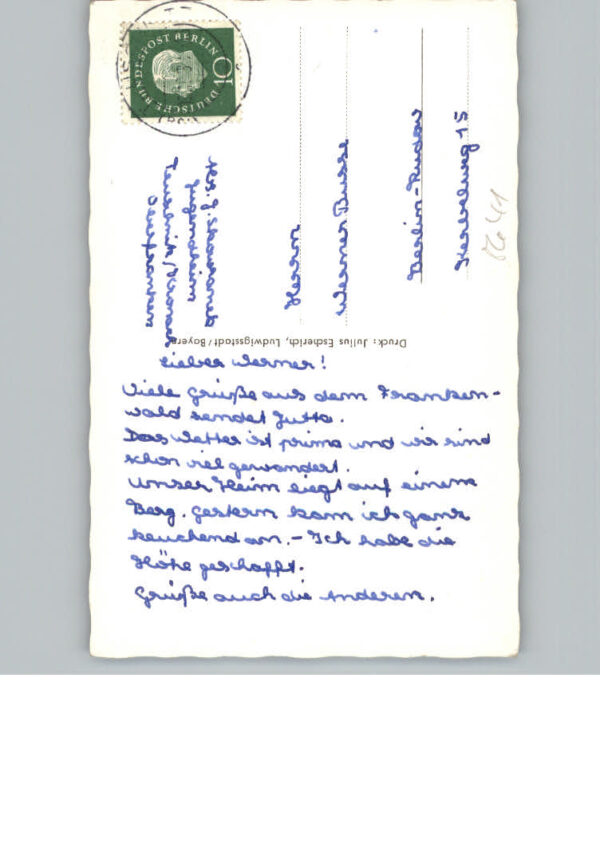 DEUTSCHE BUNDESPOST BERLIN
10
Jugendheim
Oberfranken
Herrn
Werner Busse
Berlin-Rudow
15
Druck: Julius Escherich, Ludwigsstadt/Bayern
Lieber Werner!
Viele Grüße aus dem Franken-
wald sendet Jutta.
Das Wetter ist prima und wir sind
schon viel gewandert.
Unser Heim liegt auf einem
Berg. Gestern kam ich ganz
keuchend an. – Ich habe die
Höhe geschafft.
Grüße auch die Anderen.